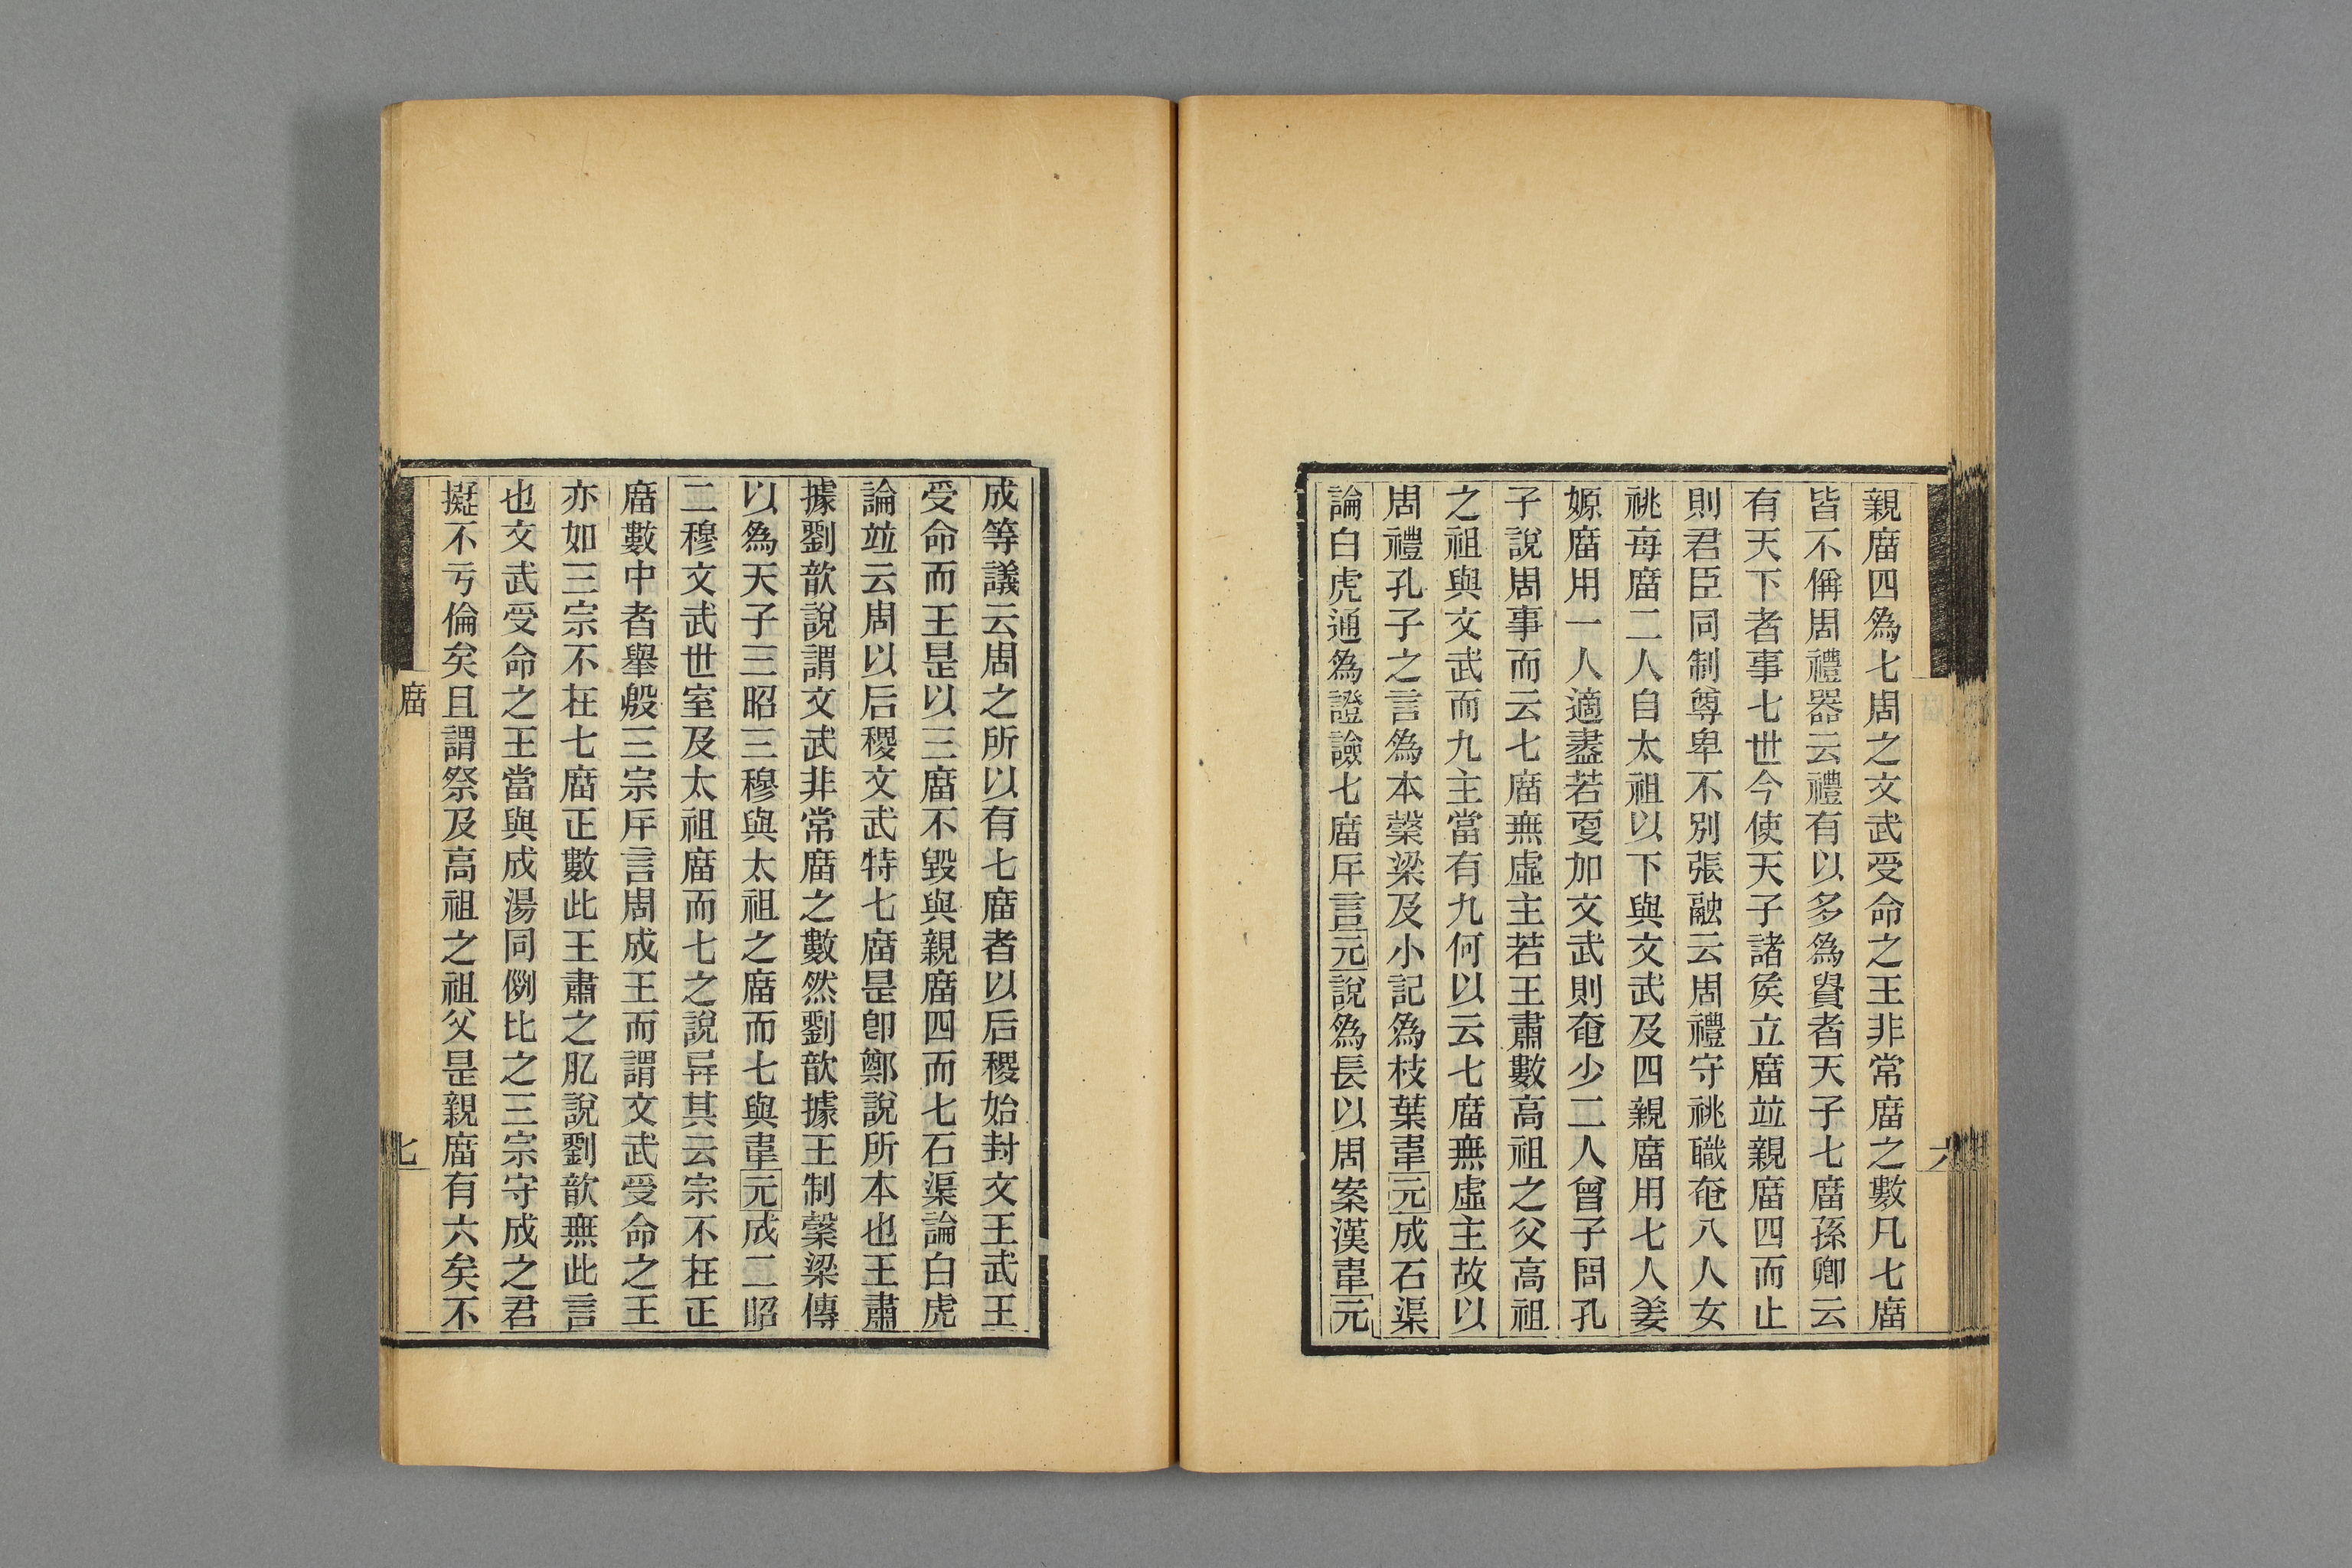 親廟四為七周之文武受命之王非常廟之數凡七廟
皆不偁周禮器云禮有以多為貴者天子七廟孫卿云
有天下者事七世今使天子諸矦立廟竝親廟四而止
則君臣同制尊卑不別張融云周禮守祧職奄八人女
祧每廟二人自太祖以下與文武及四親廟用七人姜
嫄廟用一人適盡若更加文武則奄少二人曾子問孔
子說周事而云七廟無虛主若王肅數高祖之父高祖
之祖與文武而九主當有九何以云七廟無虛主故以
周禮孔子之言為本榖梁及小記為枝葉韋元成石渠
論白虎通為證譣七廟斥言元說為長以周案漢韋元
成等議云周之所以有七廟者以后稷始封文王武王
受命而王是以三廟不毀與親廟四而七石渠論白虎
論竝云周以后稷文武特七廟是卽鄭說所本也王肅
據劉歆說謂文武非常廟之數然劉歆據王制榖梁傳
以為天子三昭三穆與太祖之廟而七與韋元成二昭
二穆文武世室及太祖廟而七之說异其云宗不在正
廟數中者舉殷三宗斥言周成王而謂文武受命之王
亦如三宗不在七廟正數此王肅之肊說劉歆無此言
也文武受命之王當與成湯同例比之三宗守成之君
擬不亏倫矣且謂祭及高祖之祖父是親廟有六矣不
廟
七
六